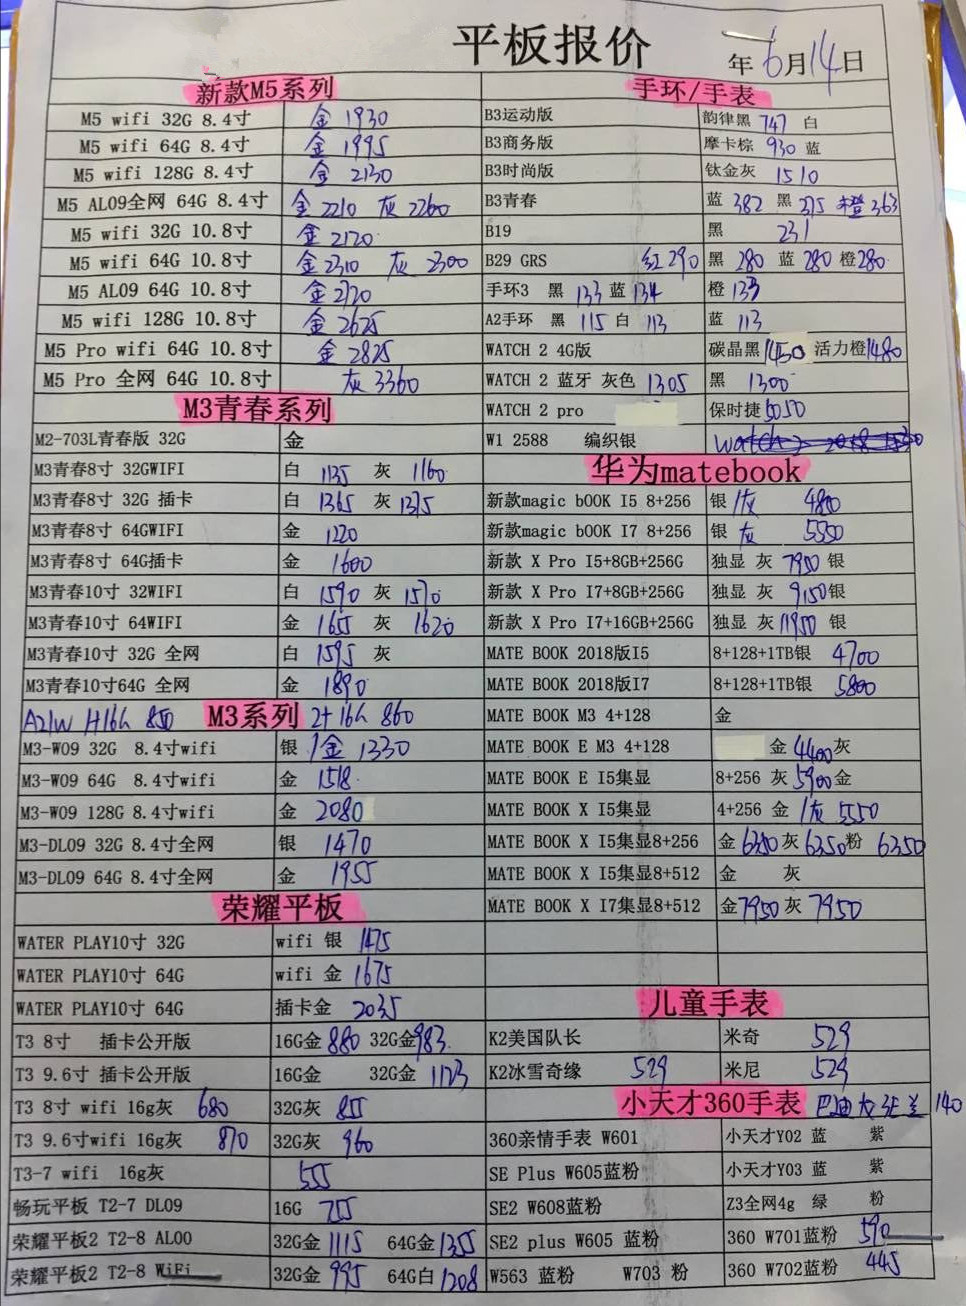 平板报价
年6月14日
新款M5系列
M5 wifi 32G 8.4寸 金 1930
M5 wifi 64G 8.4寸 金 1995
M5 wifi 128G 8.4寸 金 2130
M5 AL09全网 64G 8.4寸 金 2210 灰 2260
M5 wifi 32G 10.8寸 金 2120
M5 wifi 64G 10.8寸 金 2310 灰 2300
M5 AL09 64G 10.8寸 金 2720
M5 wifi 128G 10.8寸 金 2625
M5 Pro wifi 64G 10.8寸 金 2825
M5 Pro 全网 64G 10.8寸 灰 3360
M3青春系列
M2-703L青春版 32G 金
M3青春8寸 32GWIFI 白 1135 灰 1160
M3青春8寸 32G 插卡 白 1365 灰 1375
M3青春8寸 64GWIFI 金 1220
M3青春8寸 64G插卡 金 1600
M3青春10寸 32WIFI 白 1590 灰 1570
M3青春10寸 64WIFI 金 1655 灰 1620
M3青春10寸 32G 全网 白 1595 灰
M3青春10寸64G 全网 金 1890
M3系列 2+16G 860
M3-W09 32G 8.4寸wifi 银/金 1330
M3-W09 64G 8.4寸wifi 金 1518
M3-W09 128G 8.4寸wifi 金 2080
M3-DL09 32G 8.4寸全网 银 1470
M3-DL09 64G 8.4寸全网 金 1955
荣耀平板
WATER PLAY10寸 32G wifi 银 1475
WATER PLAY10寸 64G wifi 金 1675
WATER PLAY10寸 64G 插卡金 2035
T3 8寸 插卡公开版 16G金 880 32G金 983
T3 9.6寸 插卡公开版 16G金 32G金 1123
T3 8寸 wifi 16g灰 680 32G灰 855
T3 9.6寸wifi 16g灰 870 32G灰 960
T3-7 wifi 16g灰 555
畅玩平板 T2-7 DL09 16G 755
荣耀平板2 T2-8 AL00 32G金 1115 64G金 1355
荣耀平板2 T2-8 WiFi 32G金 995 64G白 1208
手环/手表
B3运动版 韵律黑 747 白
B3商务版 摩卡棕 930 蓝
B3时尚版 钛金灰 1510
B3青春 蓝 382 黑 375 橙 363
B19 黑 231
B29 GRS 红 290 黑 280 蓝 280 橙 280
手环3 黑 133 蓝 134 橙 133
A2手环 黑 115 白 113 蓝 113
WATCH 2 4G版 碳晶黑 1450 活力橙 1480
WATCH 2 蓝牙 灰色 1305 黑 1300
WATCH 2 pro 保时捷 5050
W1 2588 编织银
华为matebook
新款magic bOOK I5 8+256 银/灰 4800
新款magic bOOK I7 8+256 银 灰 5550
新款 X Pro I5+8GB+256G 独显 灰 7950 银
新款 X Pro I7+8GB+256G 独显 灰 9150 银
新款 X Pro I7+16GB+256G 独显 灰 11950 银
MATE BOOK 2018版I5 8+128+1TB银 4700
MATE BOOK 2018版I7 8+128+1TB银 5800
MATE BOOK M3 4+128 金
MATE BOOK E M3 4+128 金 4400 灰
MATE BOOK E I5集显 8+256 灰 5900 金
MATE BOOK X I5集显 4+256 金/灰 5550
MATE BOOK X I5集显8+256 金 6350 灰 6350 粉 6350
MATE BOOK X I5集显8+512 金 灰
MATE BOOK X I7集显8+512 金 7950 灰 7950
儿童手表
K2美国队长 米奇 529
K2冰雪奇缘 529 米尼 529
小天才360手表 140
360亲情手表 W601 小天才Y02 蓝 紫
SE Plus W605蓝粉 小天才Y03 蓝 紫
SE2 W608蓝粉 Z3全网4g 绿 粉
SE2 plus W605 蓝粉 360 W701蓝粉 590
W563 蓝粉 W703 粉 360 W702蓝粉 445